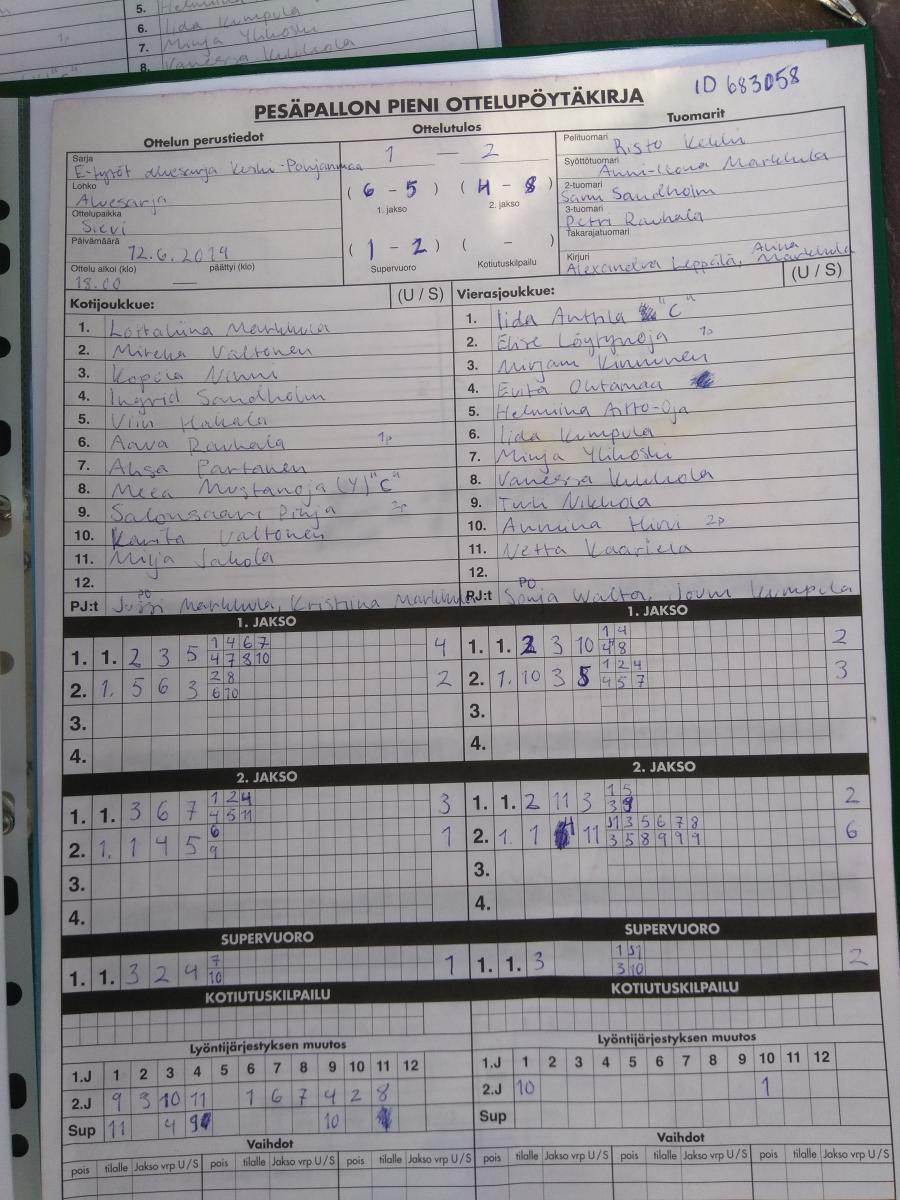 5. Helmiina
6. Iida Kumpula
7. Minja Ylikoski
8. Vanessa Kukkola
ID 683058
PESÄPALLON PIENI OTTELUPÖYTÄKIRJA
Ottelun perustiedot
Ottelutulos
Tuomarit
Sarja
E-tytöt aluesarja Keski-Pohjanmaa
Lohko
Aluesarja
Ottelupaikka
Sievi
Päivämäärä
12.6.2019
Ottelu alkoi (klo) päättyi (klo)
18.00 —
1 — 2
( 6 - 5 ) ( 4 - 8 )
1. jakso 2. jakso
( 1 - 2 ) ( - )
Supervuoro Kotiutuskilpailu
Pelituomari
Risto Kekki
Syöttötuomari
Anni-Ilona Markkula
2-tuomari
Sami Sandholm
3-tuomari
Petri Rauhala
Takarajatuomari
Kirjuri
Alexandra Leppälä, Anna Markkula
Kotijoukkue: (U / S)
1. Lottaliina Markkula
2. Mirella Valtonen
3. Kopola Ninni
4. Ingrid Sandholm
5. Viivi Hakala
6. Aava Rauhala 1p
7. Ahsa Partanen
8. Meea Mustanoja (Y) "C"
9. Salonsaari Pinja 2p
10. Karita Valtonen
11. Milja Jakola
12.
PJ:t Jussi Markkula, Kristiina Markkula
PO
Vierasjoukkue: (U / S)
1. Iida Anttila "C"
2. Ehre Löytynoja 1p
3. Mirjam Kinnunen
4. Evita Ohtamaa
5. Helmiina Arto-Oja
6. Iida Kumpula
7. Minja Ylikoski
8. Vanessa Kukkola
9. Tuuli Nikkola
10. Anniina Hirvi 2p
11. Netta Kaariela
12.
PJ:t Sonja Walta, Jouni Kumpula
PO
1. JAKSO
1. 1. 2 3 5 1 4 6 7 4
4 7 8 10
2. 1. 5 6 3 2 8 2
6 10
3.
4.
1. JAKSO
1. 1. 2 3 10 1 4 2
4 8
2. 1. 10 3 5 1 2 4 3
4 5 7
3.
4.
2. JAKSO
1. 1. 3 6 7 1 2 4 3
4 5 11
2. 1. 1 4 5 6 1
9
3.
4.
2. JAKSO
1. 1. 2 11 3 1 5 2
3 9
2. 1. 1 4 11 1 3 5 6 7 8 6
3 5 8 9 9 9
3.
4.
SUPERVUORO
1. 1. 3 2 4 7 1
10
SUPERVUORO
1. 1. 3 1 2
3 10
KOTIUTUSKILPAILU
KOTIUTUSKILPAILU
Lyöntijärjestyksen muutos
1.J 1 2 3 4 5 6 7 8 9 10 11 12
2.J 9 3 10 11 1 6 7 4 2 8
Sup 11 4 9 10
Lyöntijärjestyksen muutos
1.J 1 2 3 4 5 6 7 8 9 10 11 12
2.J 10 1
Sup
Vaihdot
pois tilalle Jakso vrp U/S pois tilalle Jakso vrp U/S pois tilalle Jakso vrp U/S
Vaihdot
pois tilalle Jakso vrp U/S pois tilalle Jakso vrp U/S pois tilalle Jakso vrp U/S